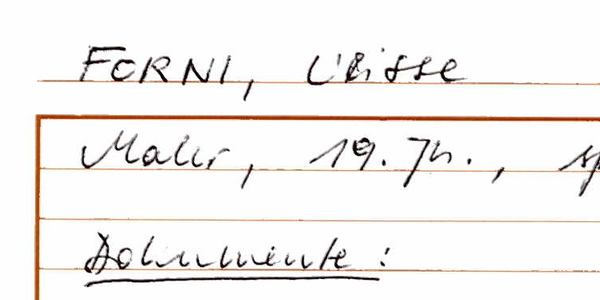 FORNI, Ulisse
Maler, 19. Jh.,
Dokumente: